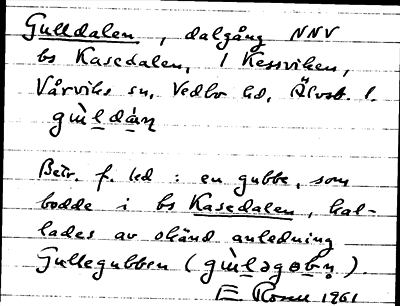 Gulldalen, dalgång NNV
bs Kasedalen, i Kessviken,
Vårviks sn, Vedbo hd, Älvsb. l.
gùl̠dá̠ɳ
Betr. f. led : en gubbe, som
bodde i bs Kasedalen, kal-
lades av okänd anledning
Gullegubben (gùl̠əgɵb̠ṇ).
E 1961